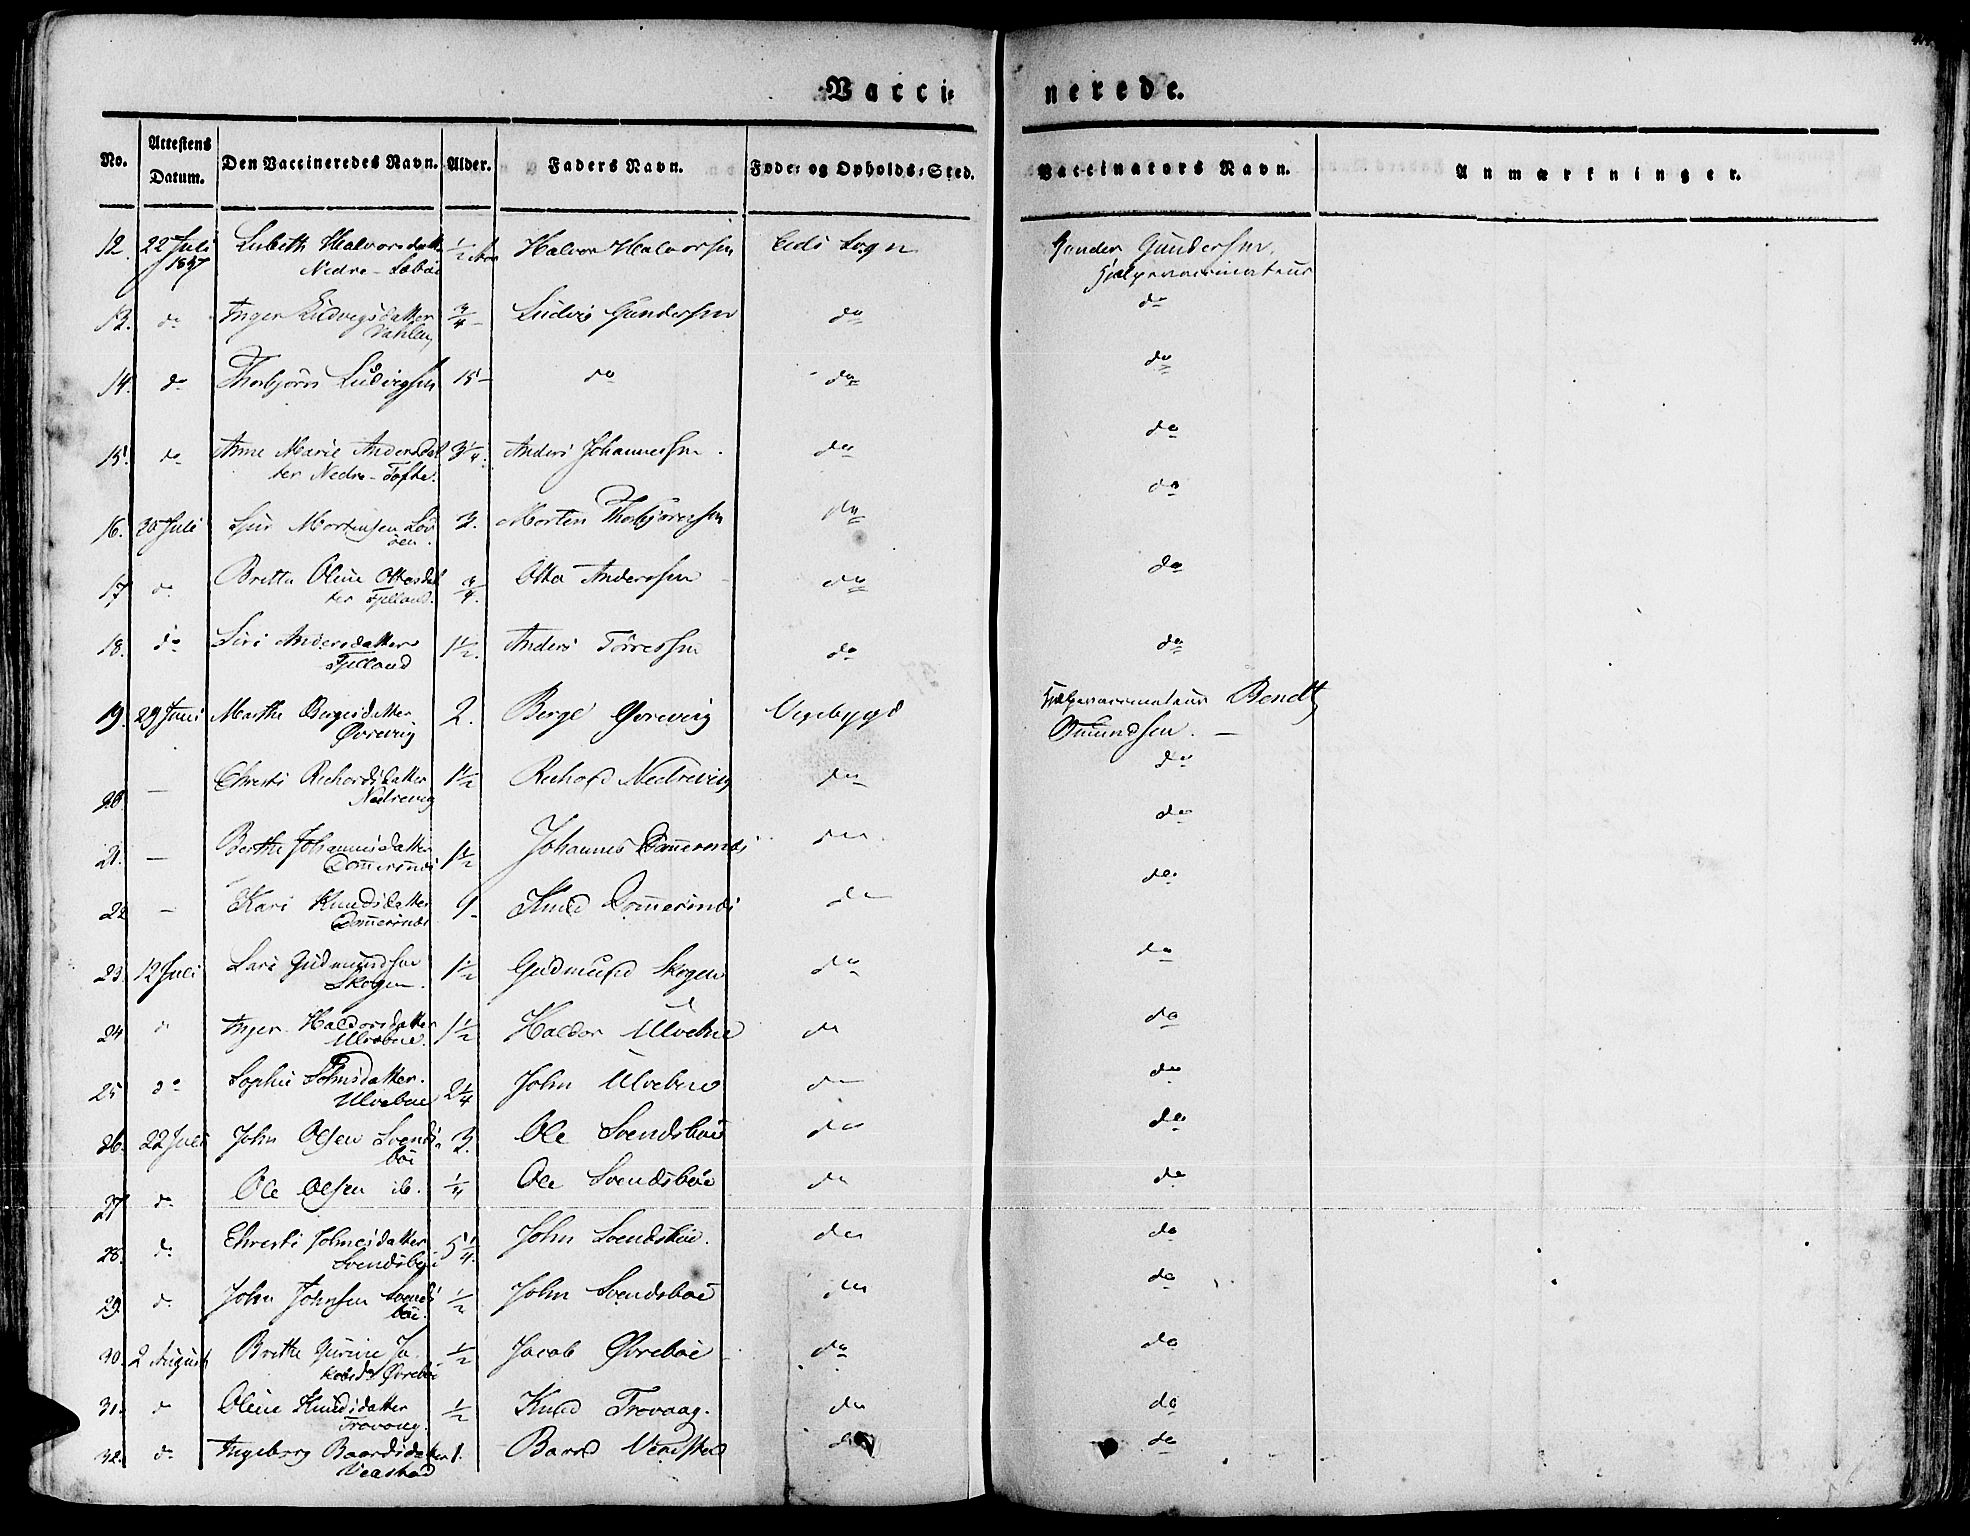 Vacci= nerede.
No. Attestens Datum. Den Vaccineredes Navn. Alder. Faders Navn. Føde= og Opholds=Sted. Vaccinators Navn. Anmærkninger.
12. 22 Juli Lisbeth Halvorsdatter ½ Halvor Halvorsen Eids Sogn Gunder Gundersen,
1837 Nedre- Hjelpevaccinateur
13. do Inger Ludvigsdatter ¾ Ludvig Gundersen do do
14. do Thorbjörn Ludvigsen 15- do do do
15. do Anne Marie Andersdat 3¼. Anders Johannessen. do do
ter Nedre-Tofte.
16. 30 Juli Mortensen 3. Morten Thorbjørnsen do do
17 do Britta Oline Ottosdat ¾. Otto Anderssen do do
ter Fjelland.
18. do Siri Andersdatter 1½. Anders Tørressen do do
Fjelland
19. 29 Juni Marthe Bergesdatter 2. Berge Øvrevig Vegebygd Hjelpevaccinateur Bendt
Øvrevig Omundsen. —
20 — Christi Richardsdatter 1½ Richard Nedrevig do do
Nedrevig
21. — Berthe Johannesdatter 1½ Johannes Dom̄ersnæs do do
Dom̄ersnæs
22 — Kari Knudsdatter 9- Knud Dom̄ersnæs do do
Dom̄ersnæs
23. 12 Juli Lars Gudmundsen 1½ Gudmund Skogen do do
Skogen.
24 do Inger Haldorsdatter 1½ Haldor Ulvebne do do
Ulvebne.
25 do Sophie Johnsdatter. 2¼ John Ulvebne do do
Ulvebne
26. 22 Juli John Olsen Svends- 3. Ole Svendsböe do do
böe
27 do Ole Olsen ib. ¼ Ole Svendsböe do do
28. do Christi Johnesdatter 5¼. John Svendsböe. do do
29. do John Johnsen Svends ½ John Svendsböe do do
böe.
30. 2 August Brithe Gurine Ja ½ Jacob Øvreböe do do
kobsd. Øvreböe
31. do Oline Knudsdatter ½ Knud Trovaag. do do
Trovaag.
32. do Ingeborg Baardsdatter 1. Baard Veastad do do
Veastad